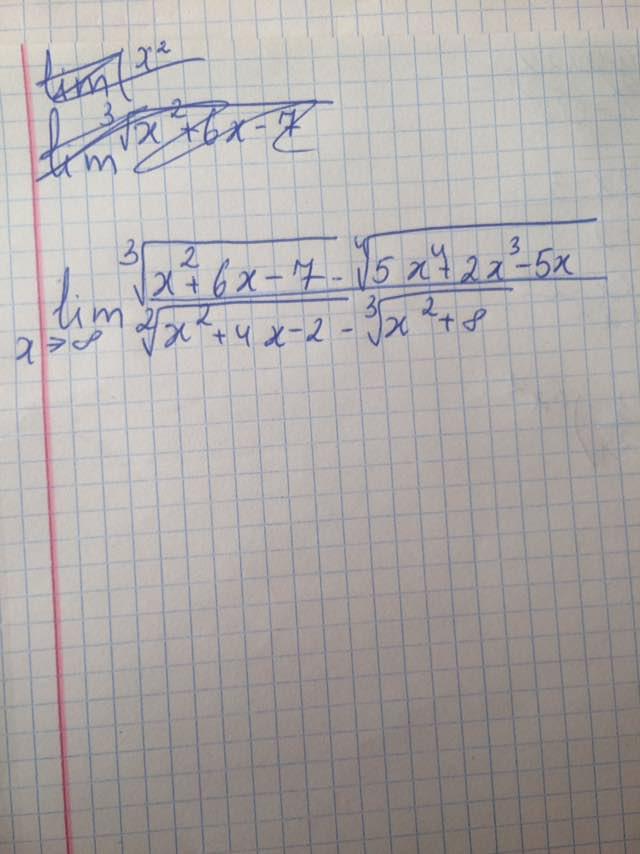 lim(x²
lim ³√x²+6x-7
lim x→∞ (³√(x²+6x-7) - ⁴√(5x⁴+2x³-5x)) / (²√(x²+4x-2) - ³√(x²+8))